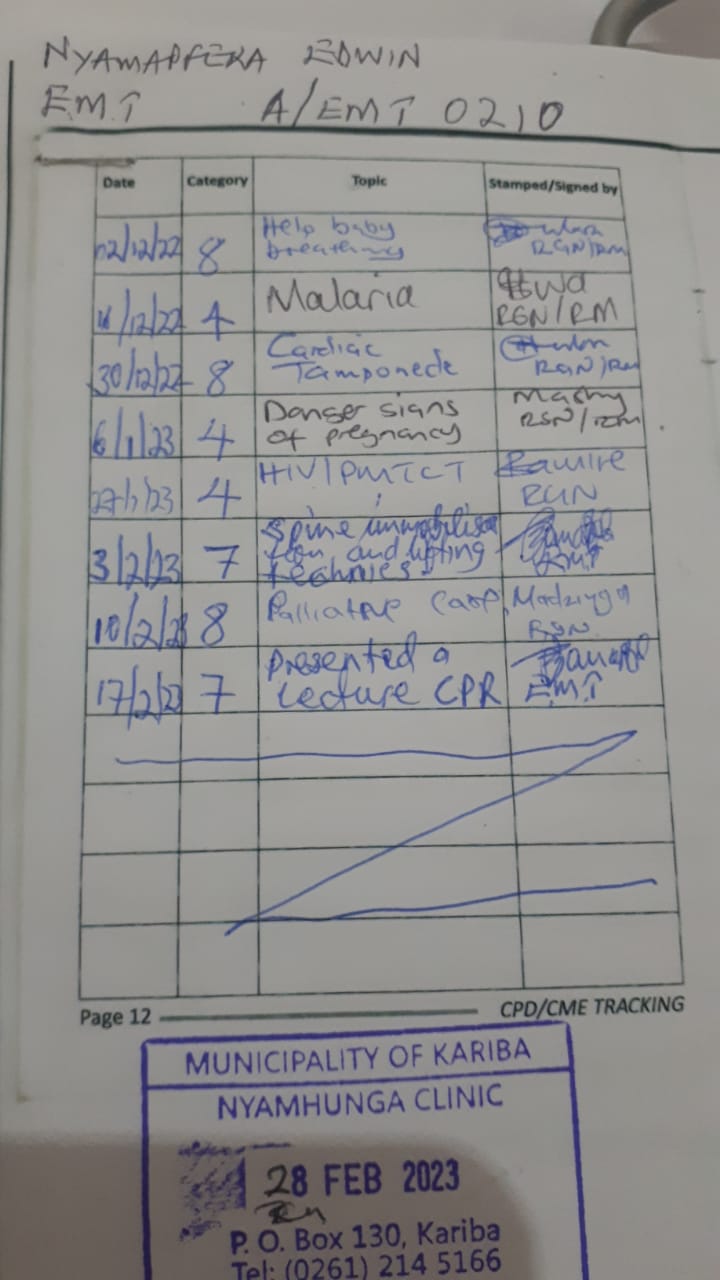 NYAMAPFEKA EDWIN
EMT A/EMT 0210
Date Category Topic Stamped/Signed by
02/12/22 8 Help baby
breathing RGN/RM
/12/22 4 Malaria
RGN/RM
30/12/22 8 Cardiac
Tamponede RGN/RM
6/1/23 4 Danger signs
of pregnancy
27/1/23 4 HIV/PMTCT
RGN
3/2/23 7 Spine immobilisa
tion and lifting
technics EMT
10/2/23 8 Palliative
RGN
17/2/23 7 Presented a
Lecture CPR EMT
Page 12 CPD/CME TRACKING
MUNICIPALITY OF KARIBA
NYAMHUNGA CLINIC
28 FEB 2023
P. O. Box 130, Kariba
Tel: (0261) 214 5166